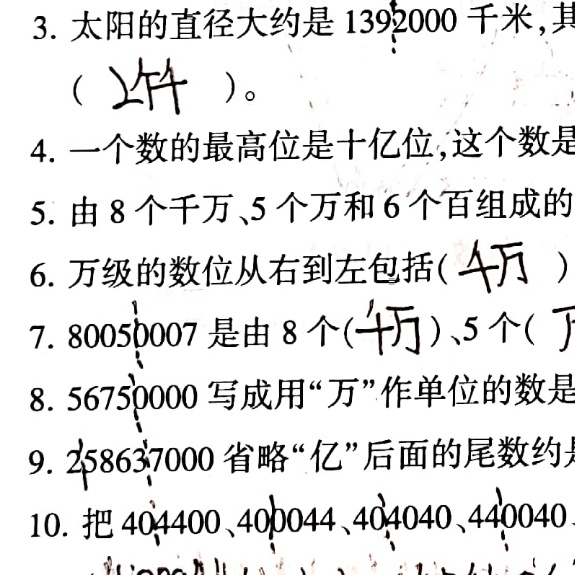 3. 太阳的直径大约是 1392000 千米,其
( 2个千 )。
4. 一个数的最高位是十亿位,这个数是
5. 由 8 个千万、5 个万和 6 个百组成的
6. 万级的数位从右到左包括( 个万 )
7. 80050007 是由 8 个(千万)、5 个(
8. 56750000 写成用“万”作单位的数是
9. 258637000 省略“亿”后面的尾数约是
10. 把 404400、400044、404040、440040、